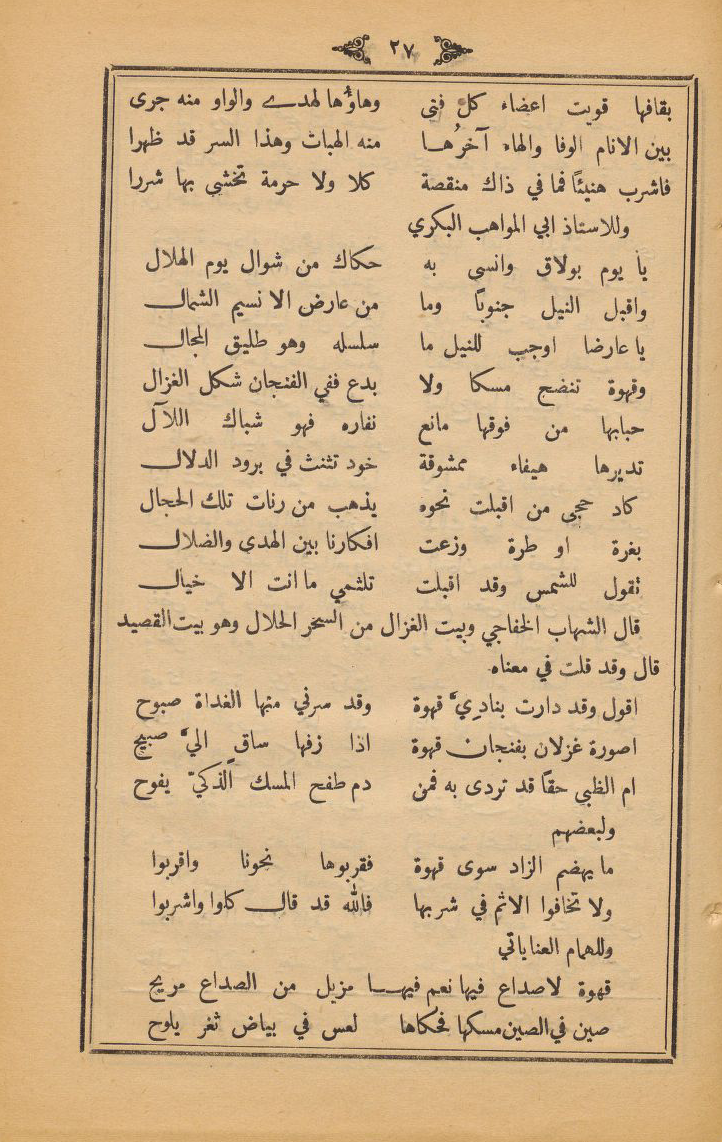 ٢٧
بقافها قويت اعضاء كل فتى وهاؤها لهدى والواو منه جرى
بين الانام الوفا والهاء آخرُها منه الهبات وهذا السر قد ظهرا
فاشرب هنيئًا فما في ذاك منقصة كلا ولا حرمة تخشى بها شررا
وللاستاذ ابي المواهب البكري
يا يوم بولاق وانسى به حكاك من شوال يوم الهلال
واقبل النيل جنوبًا وما من عارض الا نسيم الشمال
يا عارضا اوجب للنيل ما سلسله وهو طليق المجال
وقهوة تنضج مسكا ولا بدع ففي الفنجان شكل الغزال
حبابها من فوقها مانع نفاره فهو شباك اللآل
تديرها هيفاء ممشوقة خود تثنت في برود الدلال
كاد حجى من اقبلت نحوه يذهب من رنات تلك الحجال
بغرة او طرة وزعت افكارنا بين الهدى والضلال
تقول للشمس وقد اقبلت تلثمي ما انت الا خيال
قال الشهاب الخفاجي وبيت الغزال من السحر الحلال وهو بيت القصيد
قال وقد قلت في معناه
اقول وقد دارت بناديَّ قهوة وقد سرني منها الغداة صبوح
اصورة غزلان بفنجان قهوة اذا زفها ساقٍ اليَّ صبيح
ام الظبي حقًا قد تردى به فمن دم طفح المسك الذكيّ يفوح
ولبعضهم
ما يهضم الزاد سوى قهوة فقربوها نحونا واقربوا
ولا تخافوا الاثم في شربها فالله قد قال كلوا واشربوا
وللهمام العناياتي
قهوة لاصداع فيها نعم فيها مزيل من الصداع مريح
صين في الصين مسكها فحكاها لعس في بياض ثغر يلوح